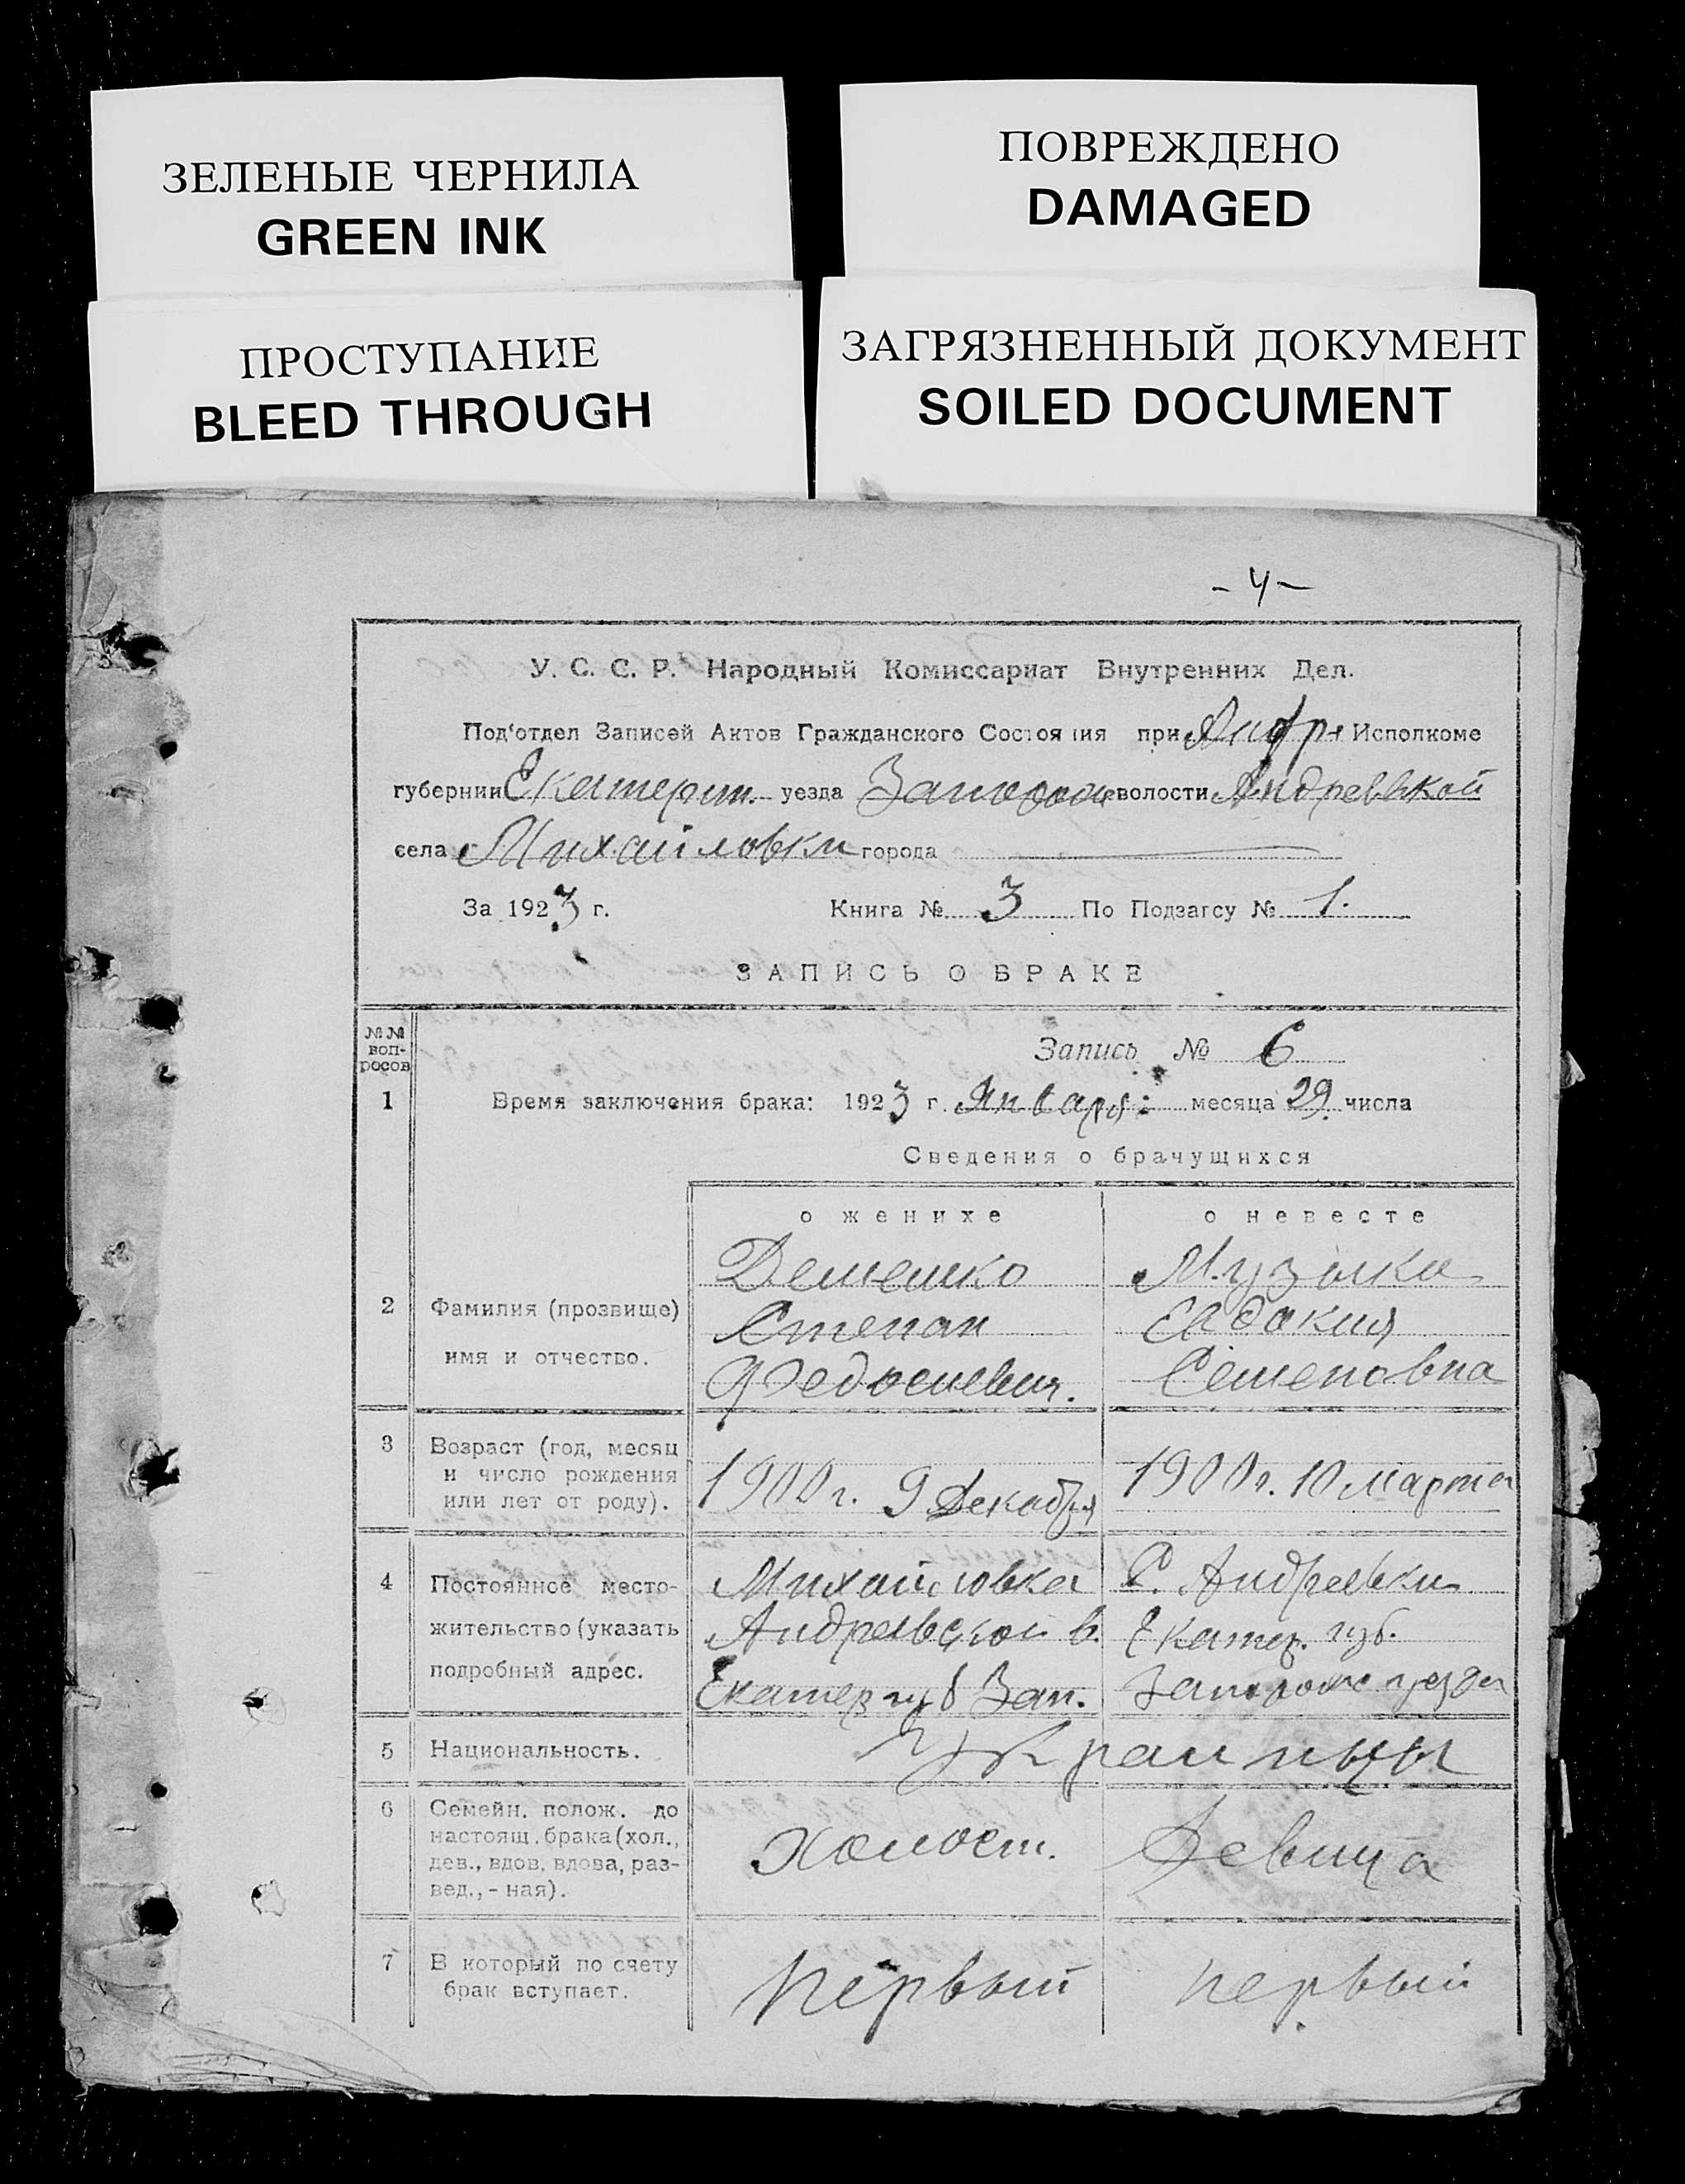 ЗЕЛЕНЫЕ ЧЕРНИЛА
GREEN INK
ПОВРЕЖДЕНО
DAMAGED
ПРОСТУПАНИЕ
BLEED THROUGH
ЗАГРЯЗНЕННЫЙ ДОКУМЕНТ
SOILED DOCUMENT
- 4 -
У. С. С. Р. Народный Комиссариат Внутренних Дел.
Под‘отдел Записей Актов Гражданского Состояния при Андр. Исполкоме
губернии Екатерин. уезда волости Андреевской
села Михайловки города
За 1923 г. Книга № 3 По Подзагсу № 1.
ЗАПИСЬ О БРАКЕ
№№ воп-
росов
Запись № 6
1 Время заключения брака: 1923 г. Января месяца 29 числа
Сведения о брачущихся
о женихе о невесте
Демешко Музыка
2 Фамилия (прозвище) Степан Евдокия
имя и отчество. Федосиевич. Семеновна
3 Возраст (год, месяц
и число рождения 1900 г. 9 Декабря 1900 г. 10 марта
или лет от роду).
4 Постоянное место- Михайловка С. Андреевки
жительство (указать Андреевской в. Екатер. губ.
подробный адрес. Екатер губ Зап. уезда
5 Национальность. Украинцы
6 Семейн. полож. до
настоящ. брака (хол., Холост. Девица
дев., вдов, вдова, раз-
вед., - ная).
7 В который по счету первый первый
брак вступает.